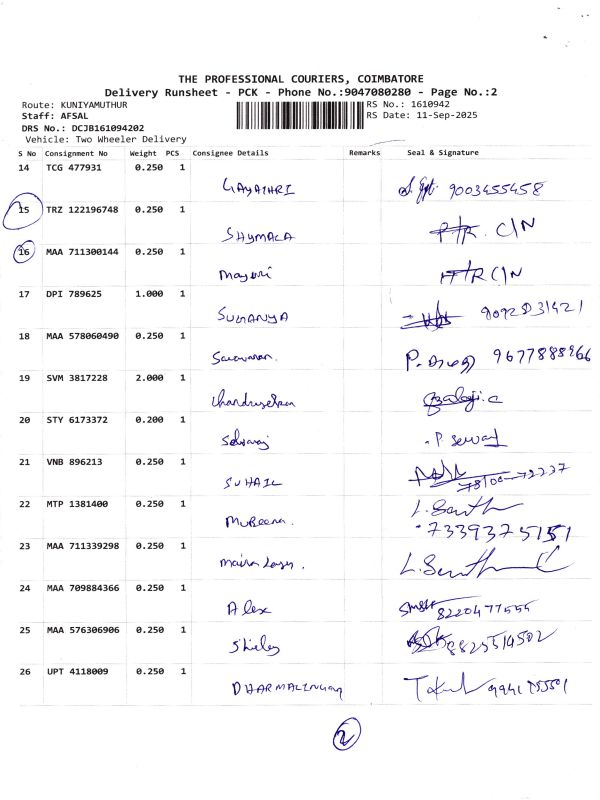 THE PROFESSIONAL COURIERS, COIMBATORE
Delivery Runsheet - PCK - Phone No.:9047080280 - Page No.:2
Route: KUNIYAMUTHUR RS No.: 1610942
Staff: AFSAL RS Date: 11-Sep-2025
DRS No.: DCJB161094202
Vehicle: Two Wheeler Delivery
S No Consignment No Weight PCS Consignee Details Remarks Seal & Signature
14 TCG 477931 0.250 1
GAYATHRI 9003455458
15 TRZ 122196748 0.250 1
SHYMALA C/N
16 MAA 711300144 0.250 1
Mayuri C/N
17 DPI 789625 1.000 1
SUGANYA
18 MAA 578060490 0.250 1
Saravanan. P.
19 SVM 3817228 2.000 1
Balaji.c
20 STY 6173372 0.200 1
Selvaraj
21 VNB 896213 0.250 1
SUHAIL
22 MTP 1381400 0.250 1
Mubeena.
23 MAA 711339298 0.250 1
24 MAA 709884366 0.250 1
Alex 8220477555
25 MAA 576306906 0.250 1
Shieley
26 UPT 4118009 0.250 1
DHARMALINGAM
2